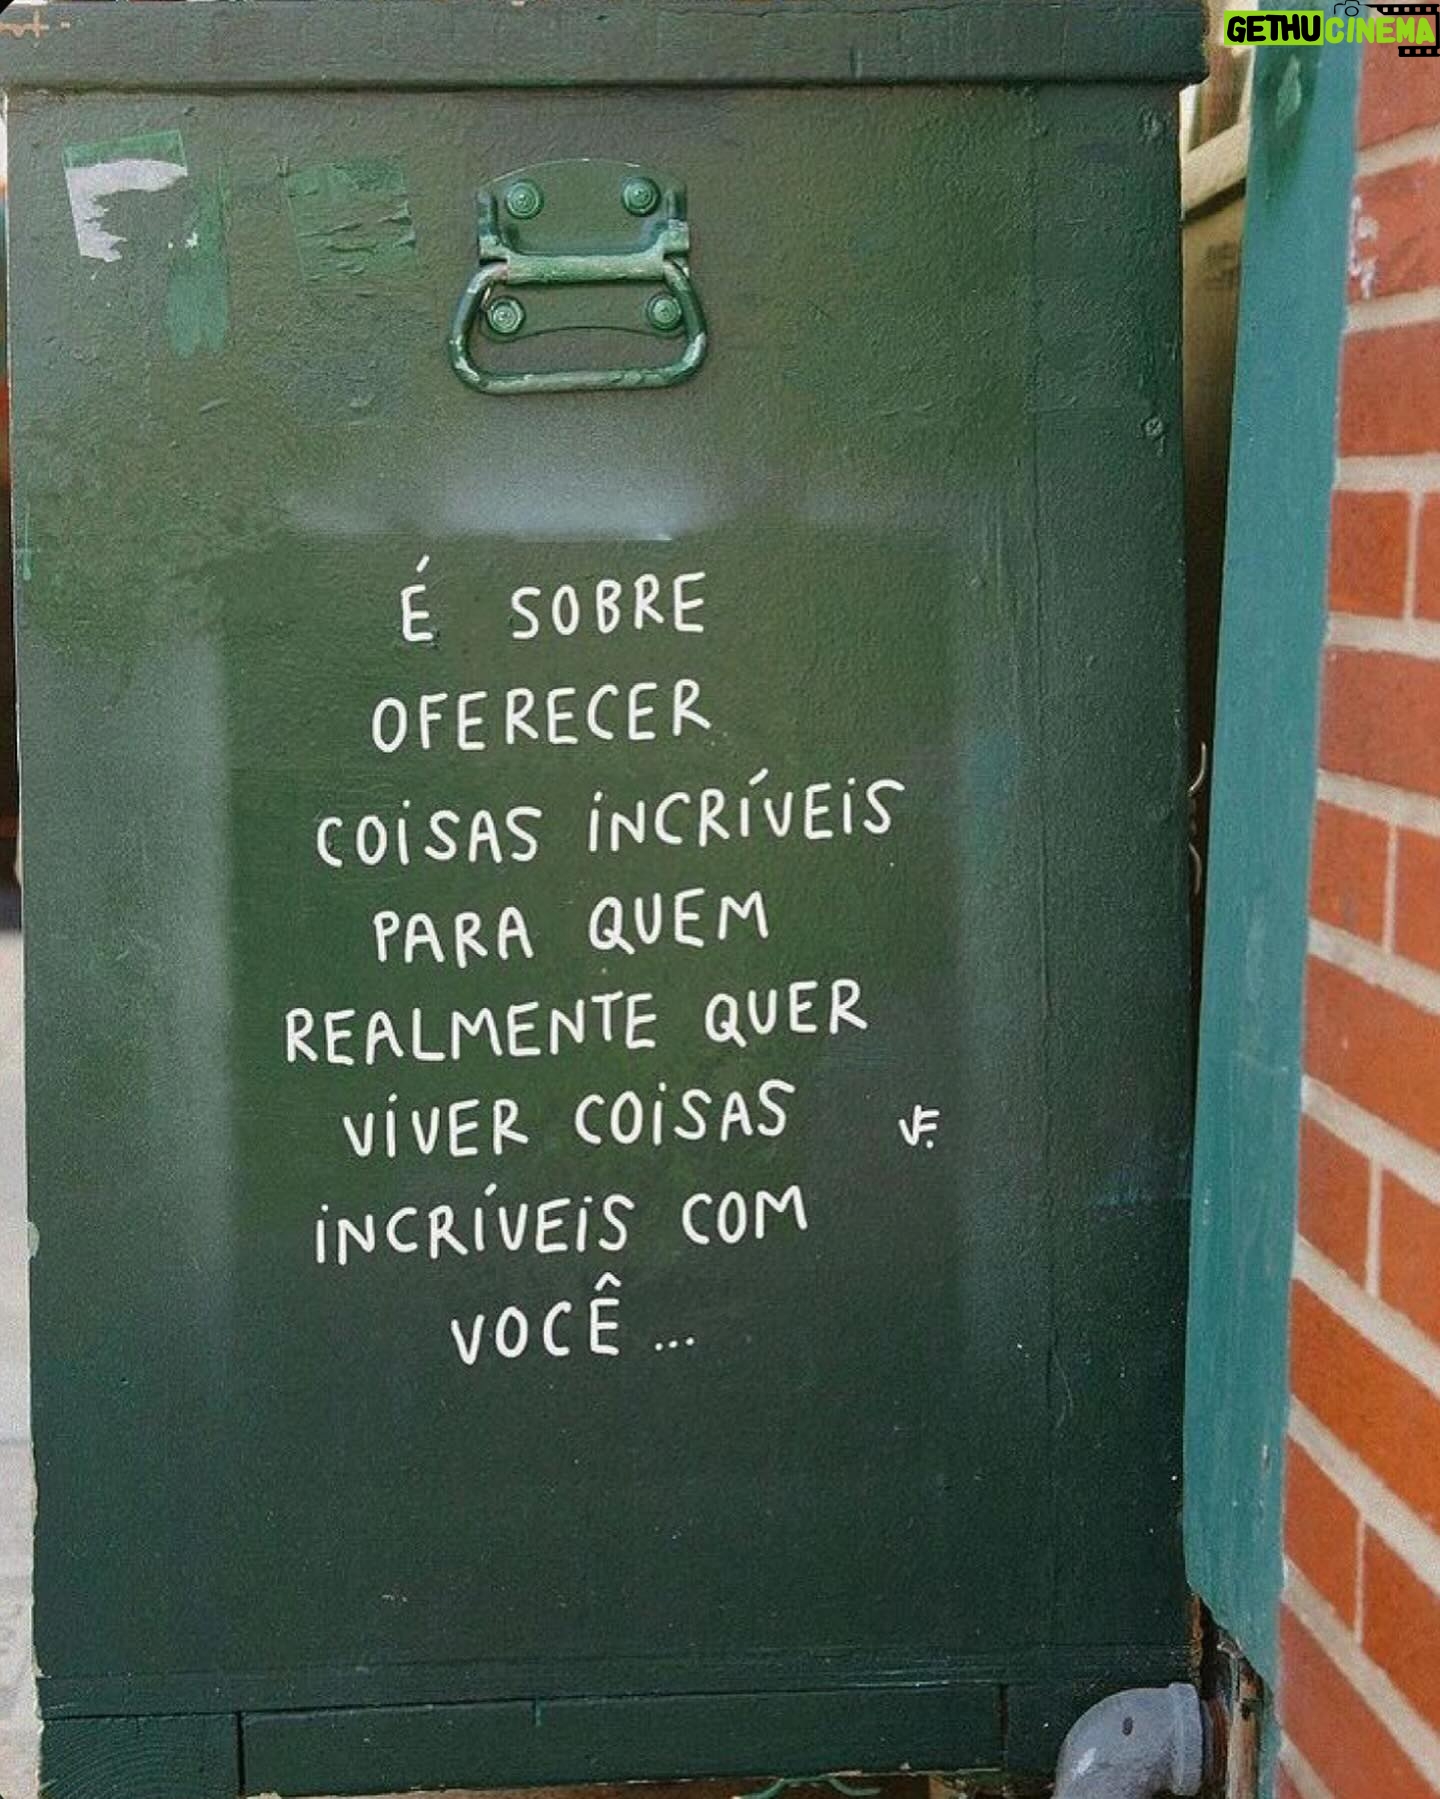 GETHUCINEMA
É SOBRE
OFERECER
COISAS INCRÍVEIS
PARA QUEM
REALMENTE QUER
VIVER COISAS
VF.
INCRÍVEIS COM
VOCÊ...